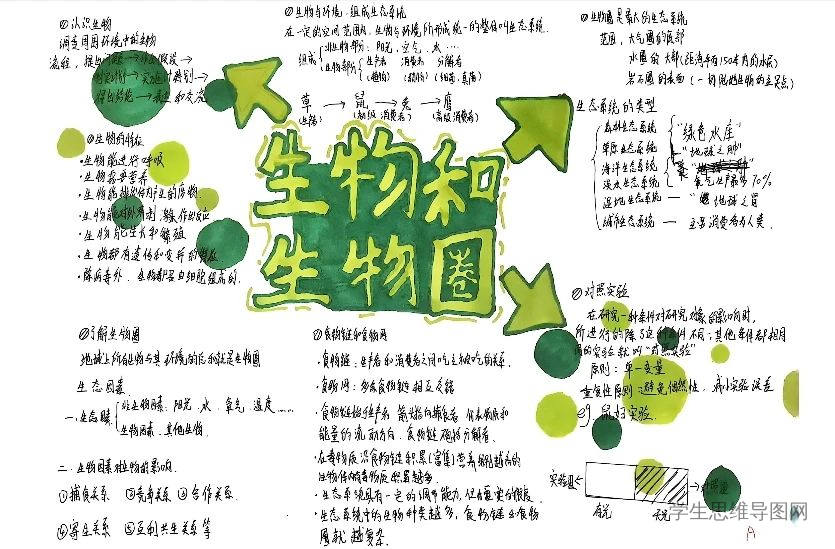 认识生物
调查周围环境中的生物
流程：提出问题→作出假设→
制定计划→实施计划→
得出结论→表达和交流
生物与环境，组成生态系统
在一定的空间范围内，生物与环境所形成统一的整体叫生态系统.
组成
非生物部分：阳光，空气，水……
生物部分
生产者 消费者 分解者
(植物) (动物) (细菌，真菌)
草→鼠→兔→鹰
(高级消费者)
生物圈是最大的生态系统
范围，大气圈的底部
水圈的大部(距海平面150米内的水层)
岩石圈的表面(一切陆地生物的立足点)
生态系统的类型
森林生态系统
"绿色水库"
草原生态系统
"地球之肺"
海洋生态系统
氧气生产最多70%
淡水生态系统
湿地生态系统—"地球之肾
城市生态系统—主要消费者为人类.
生物的特征
·生物能进行呼吸
·生物需要营养
·生物能排出体内产生的废物
·生物能对外界刺激作出反应
·生物能生长和繁殖
·生物都有遗传和变异的特征
·除病毒外，生物都是由细胞组成的.
生物和
生物圈
对照实验
在研究一种条件对研究对象的影响时，
所进行的除了这种条件不同；其他条件都相同
的实验就叫"对照实验"
原则：单一变量
重复性原则：避免偶然性，减小实验误差
eg 鼠妇实验.
实验组←
→对照组
了解生物圈
地球上所有生物与其环境的总和就是生物圈
生态因素
一.生态因素
非生物因素：阳光、水、氧气，温度……
生物因素：其他生物.
二.生物因素对生物的影响.
①捕食关系 ②竞争关系 ③合作关系
④寄生关系 ⑤互利共生关系等
食物链和食物网
·食物链：生产者和消费者之间吃与被吃的关系.
·食物网：多条食物链相互交错
·食物链起始生产者，箭头指向捕食者，代表物质和
能量的流动方向，食物链不包括分解者.
·有毒物质沿食物链积累(富集)营养级别越高的
生物体内有毒物质积累越多
·生态系统具有一定的调节能力，但有一定的限度.
·生态系统中的生物种类越多，食物链与食物
网就越复杂.
学生思维导图网
A